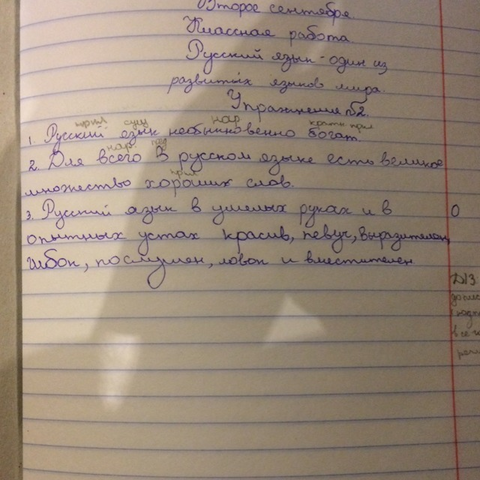 Второе сентября
Классная работа
Русский язык - один из
развитых языков мира.
Упражнение №2.
прил сущ нар кратк прил
1. Русский язык необыкновенно богат.
нар
2. Для всего в русском языке есть великое
прил
множество хороших слов.
3. Русский язык в умелых руках и в
опытных устах красив, певуч, выразителен,
гибок, послушен, ловок и вместителен.